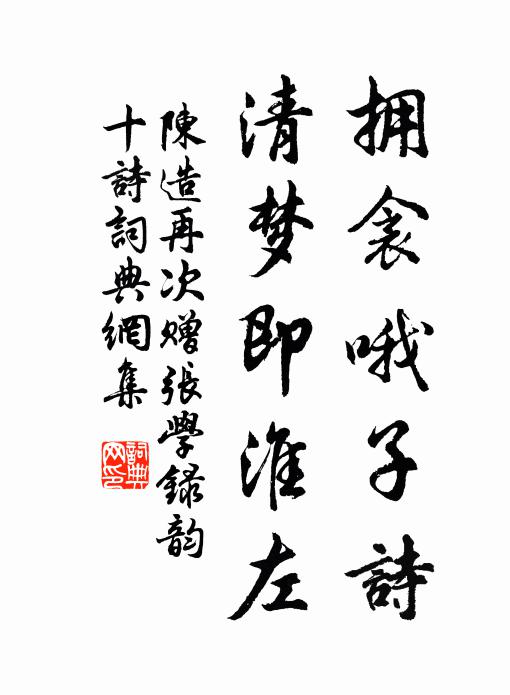 拥衾哦子詩
清梦即淮左
陳造再次赠張學録韵
十詩詞典網集
詞典
网印